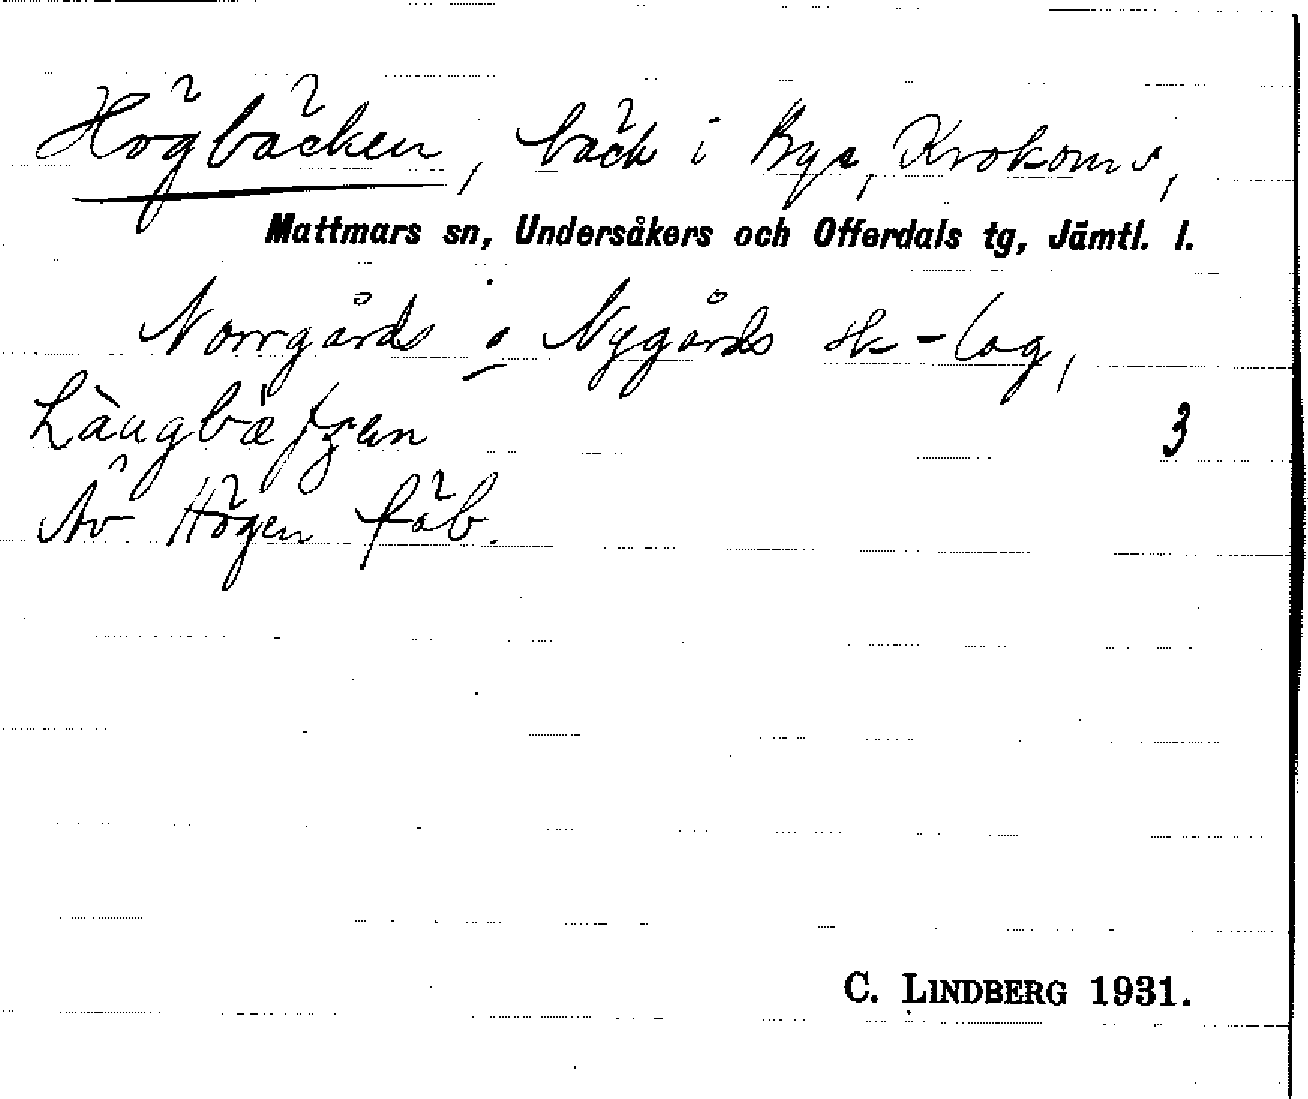 Högbäcken, bäck i Bye, Krokoms,
Mattmars sn, Undersåkers och Offerdals tg, Jämtl. l.
Norrgårds o Nygårds sk-lag,
3
Av Högen fäb.
C. LINDBERG 1931.